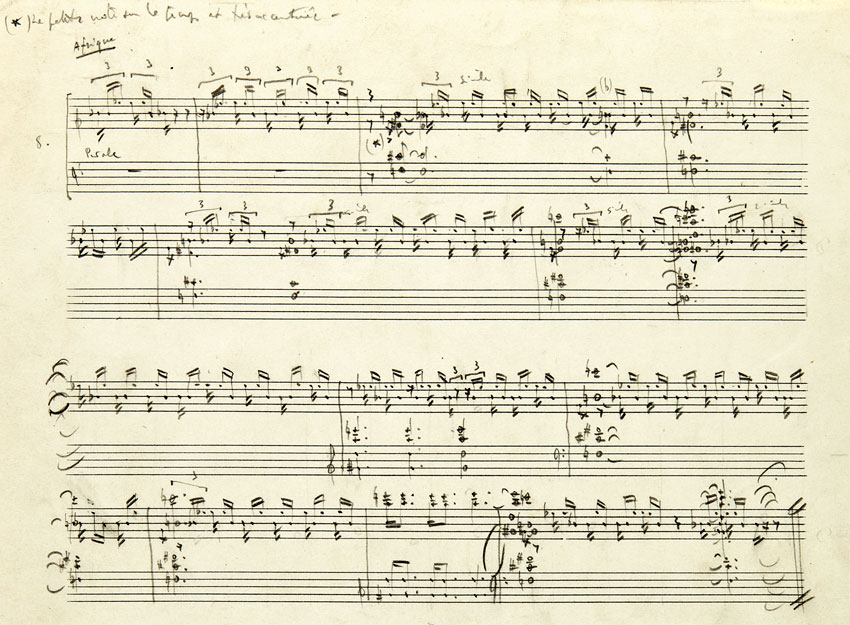 (*) la petite note sur le temps et très accentuée –
Afrique
3 3 3 3 3 3 3 3 simile 3
8.
(*)
3 3 3 simile 3 simile 3 simile
3 3
3